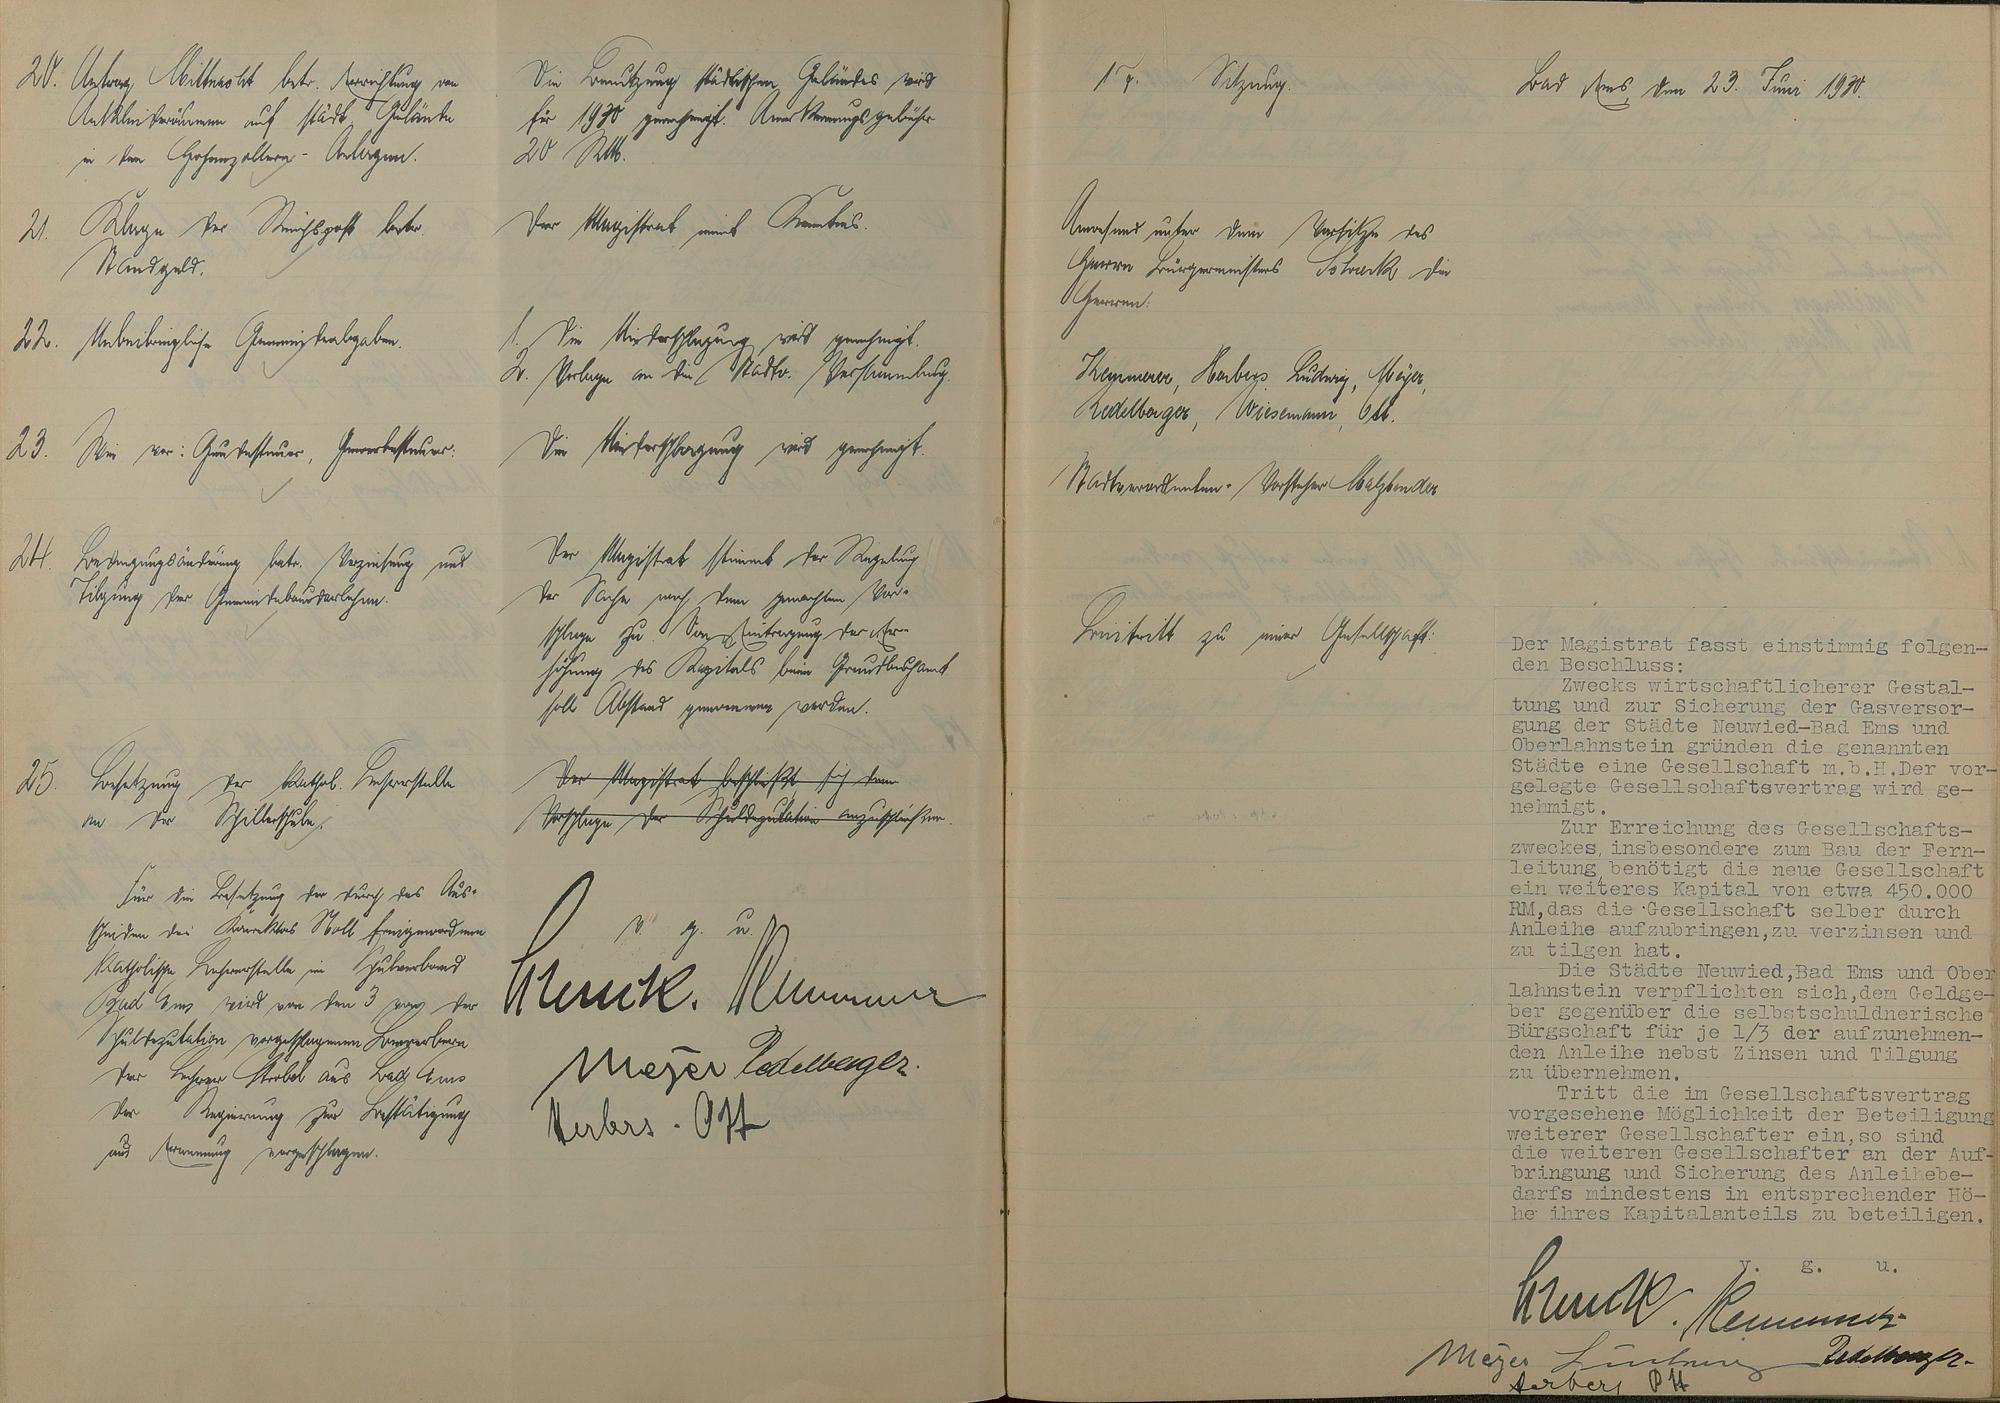 20. Antrag Mittnacht betr. Errichtung von
Ankleideräumen auf städt. Gelände
in den Hohenzollern-Anlagen.
Die Benutzung städtischen Geländes wird
für 1930 genehmigt. Anerkennungsgebühr
20 RM.
21. Klage der Reichspost betr.
Standgeld.
Der Magistrat nimmt Kenntnis.
22. Unbeibringliche Gemeindeabgaben.
1. Die Niederschlagung wird genehmigt.
2. Vorlage an die Stadtv. Versammlung.
23. Wie vor: Hundesteuer, Gewerbesteuer.
Die Niederschlagung wird genehmigt.
24. Bedingungsänderung betr. Verzinsung und
Tilgung der Gemeindebaudarlehen.
Der Magistrat stimmt der Regelung
der Sache nach dem gemachten Vor-
schlage zu. Von Eintragung der Er-
höhung des Kapitals beim Grundbuchamt
soll Abstand genommen werden.
25. Besetzung der kathol. Lehrerstelle
an der Schillerschule.
Der Magistrat beschließt sich dem
Vorschlage der Schuldeputation anzuschließen.
Für die Besetzung der durch das Aus-
scheiden des Konrektors Noll freigewordenen
katholische Lehrerstelle im Schulverband
Bad Ems wird von den 3 von der
Schuldeputation vorgeschlagenen Bewerbern
der Lehrer Ströbel aus Bad Ems
der Regierung zur Bestätigung
und Ernennung vorgeschlagen.
v. g. u.
Schreck. Kemmerer
Meyer Zedelberger.
Herbers. Ott
17. Sitzung.
Bad Ems, den 23. Juni 1930.
Anwesend unter dem Vorsitze des
Herrn Bürgermeisters Schreck die
Herren:
Kemmerer, Herbers, Ludwig, Meyer,
Zedelberger, Wiesemann, Ott.
Stadtverordneten-Vorsteher Malzbender
Beitritt zu einer Gesellschaft:
Der Magistrat fasst einstimmig folgen-
den Beschluss:
Zwecks wirtschaftlicherer Gestal-
tung und zur Sicherung der Gasversor-
gung der Städte Neuwied-Bad Ems und
Oberlahnstein gründen die genannten
Städte eine Gesellschaft m.b.H.Der vor-
gelegte Gesellschaftsvertrag wird ge-
nehmigt.
Zur Erreichung des Gesellschafts-
zweckes, insbesondere zum Bau der Fern-
leitung benötigt die neue Gesellschaft
ein weiteres Kapital von etwa 450.000
RM,das die Gesellschaft selber durch
Anleihe aufzubringen,zu verzinsen und
zu tilgen hat.
Die Städte Neuwied,Bad Ems und Ober
lahnstein verpflichten sich,dem Geldge-
ber gegenüber die selbstschuldnerische
Bürgschaft für je 1/3 der aufzunehmen-
den Anleihe nebst Zinsen und Tilgung
zu übernehmen.
Tritt die im Gesellschaftsvertrag
vorgesehene Möglichkeit der Beteiligung
weiterer Gesellschafter ein,so sind
die weiteren Gesellschafter an der Auf-
bringung und Sicherung des Anleihebe-
darfs mindestens in entsprechender Hö-
he ihres Kapitalanteils zu beteiligen.
v. g. u.
Schreck. Kemmerer
Meyer Ludwig Zedelberger.
Herbers Ott